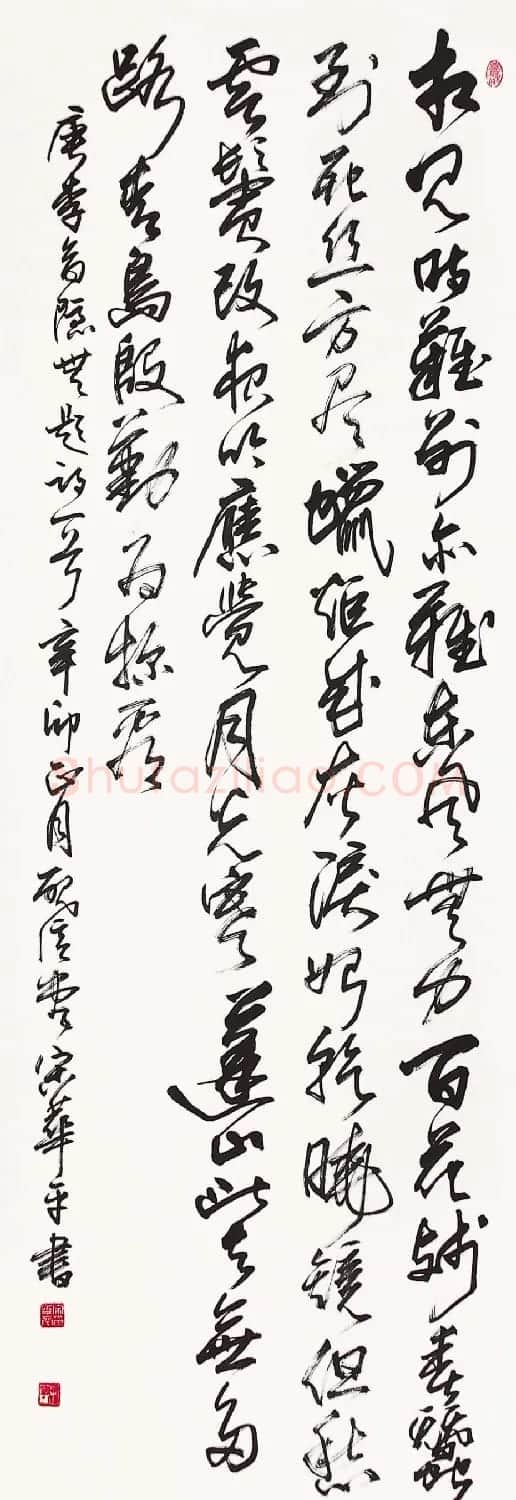 相見時難別亦難東風無力百花殘春蠶
到死絲方盡蠟炬成灰淚始乾曉鏡但愁
雲鬢改夜吟應覺月光寒蓬山此去無多
路青鳥殷勤為探看
唐李商隱無題詩一首辛卯正月宋華平書
Shufaziliao.COM